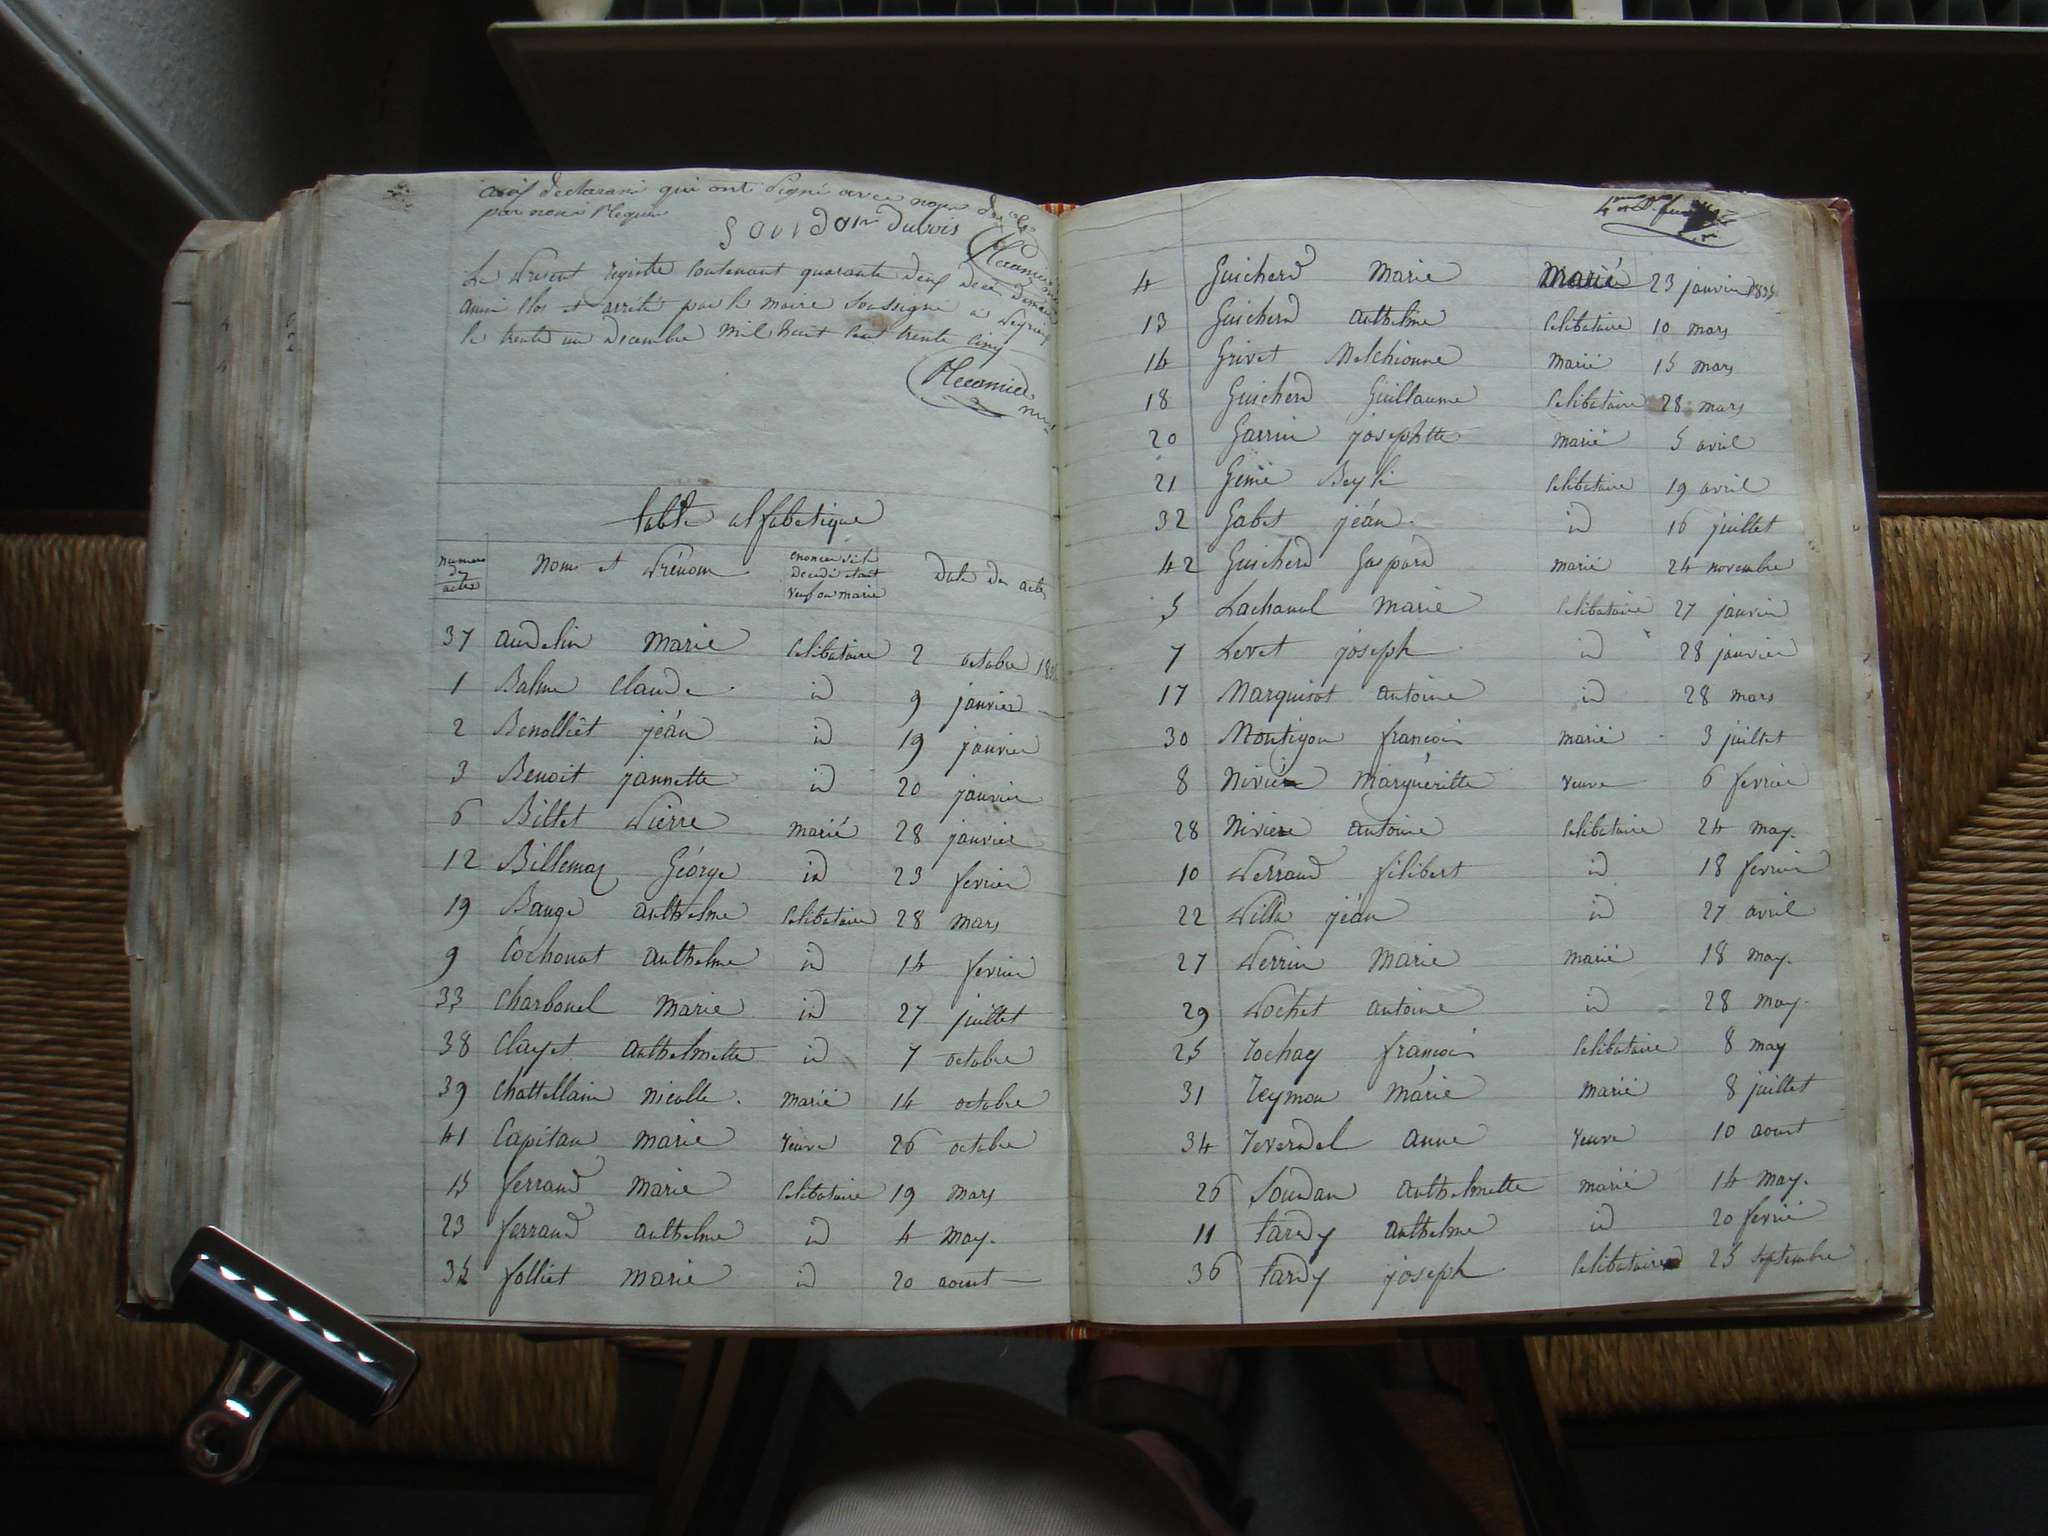 declarant qui ont signé avec nous
par nous
Soudan Dubois
Le present registre contenant quarante deux deces
ainsi clos et arrêté par le maire soussigné a
le trente un decembre mil huit cent trente cinq
Recamier
table alfabetique
numero des actes Noms et Prénom enoncer si le decedé etait veuf ou marié date des actes
37 andelin Marie Celibataire 2 octobre
1 Balme Claude id 9 janvier
2 Benolliet jéan id 19 janvier
3 Benoit jannette id 20 janvier
6 Billet Pierre marié 28 janvier
12 Billemaz Géorge id 23 fevrier
19 Bauge anthelme Celibataire 28 mars
9 Cochonat anthelme id 14 fevrier
33 Charbonel Marie id 27 juillet
38 Clayet anthelmette id 7 octobre
39 Chattellain nicolle marié 14 octobre
41 Capitan marie veuve 26 octobre
15 ferrand marie Celibataire 19 mars
23 ferrand anthelme id 4 may
35 folliet marie id 20 aout
4 Guicherd Marie Marié 23 janvier 1835
13 Guicherd anthelme Celibataire 10 mars
14 Grivet Melchionne marié 15 mars
18 Guicherd Guillaume Celibataire 28 mars
20 Garrin josephtte marié 5 avril
21 Genie Celibataire 19 avril
32 Gabet jéan id 16 juillet
42 Guicherd Gaspard marié 24 novembre
5 Lachanal Marie Celibataire 27 janvier
7 Levet joseph id 28 janvier
17 Marquisot antoine id 28 mars
30 Montigon francois marié 3 juillet
8 Niviere Margueritte veuve 6 fevrier
28 Niviere antoine Celibataire 24 may
10 Perraud filibert id 18 fevrier
22 jéan id 27 avril
27 Perrin Marie marié 18 may
29 Pochet antoine id 28 may
25 Rochay francois Celibataire 8 may
31 Reymon Marie marié 8 juillet
34 Reverdel anne veuve 10 aout
26 Soudan anthelmette marié 14 may
11 tardy anthelme id 20 fevrier
36 tardy joseph Celibataire 25 septembre